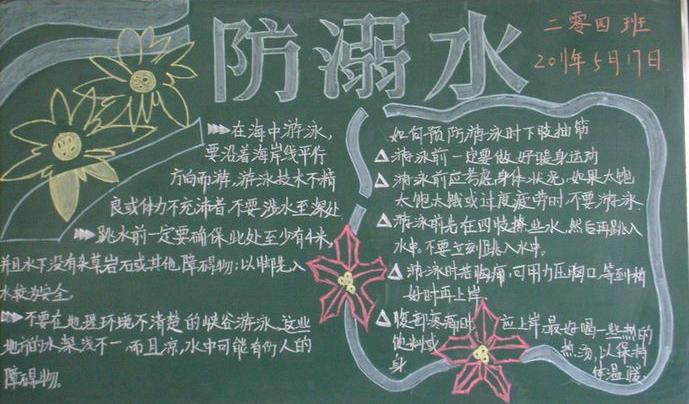 防溺水
二零四班
2019年5月17日
在海中游泳,
要沿着海岸线平行
方向而游,游泳技术不精
良或体力不充沛者,不要涉水至深处
跳水前一定要确保此处至少有4米,
并且水下没有杂草岩石或其他障碍物;以脚先入
水较为安全
不要在地理环境不清楚的峡谷游泳,这些
地方的水深浅不一,而且凉,水中可能有伤人的
障碍物。
如何预防游泳时下肢抽筋
游泳前一定要做好暖身运动
游泳前应考虑身体状况,如果太饱
太饱太饿或过度疲劳时,不要游泳
游泳前先在四肢撩些水,然后再跳入
水中。不要立刻跳入水中。
游泳时若胸痛,可用力压胸口,等到稍
好时再上岸
腹部疼痛时 应上岸,最好喝一些热的
热汤,以保持
身 体温暖